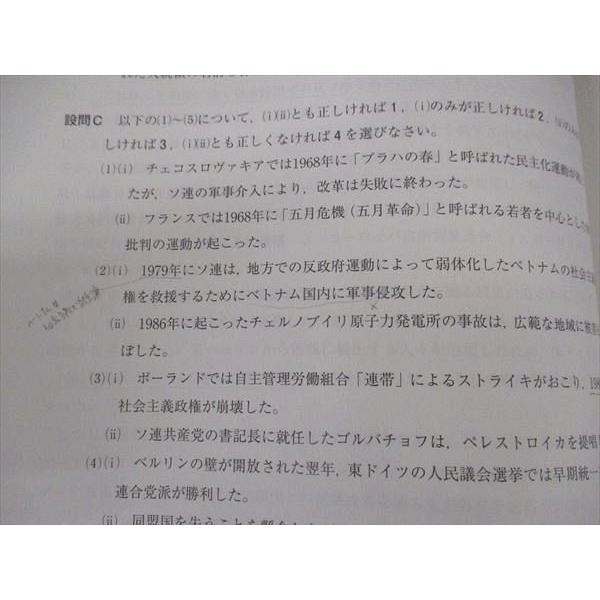 設問C 以下の(1)~(5)について,(i)(ii)とも正しければ1,(i)のみが正しければ2,(ii)のみ
しければ3,(i)(ii)とも正しくなければ4を選びなさい。
(1)(i) チェコスロヴァキアでは1968年に「プラハの春」と呼ばれた民主化運動が
たが,ソ連の軍事介入により,改革は失敗に終わった。
(ii) フランスでは1968年に「五月危機(五月革命)」と呼ばれる若者を中心とした
批判の運動が起こった。
(2)(i) 1979年にソ連は,地方での反政府運動によって弱体化したベトナムの社会主
権を救援するためにベトナム国内に軍事侵攻した。
(ii) 1986年に起こったチェルノブイリ原子力発電所の事故は,広範な地域に被害
ぼした。
(3)(i) ポーランドでは自主管理労働組合「連帯」によるストライキがおこり,198
社会主義政権が崩壊した。
(ii) ソ連共産党の書記長に就任したゴルバチョフは,ペレストロイカを提唱
(4)(i) ベルリンの壁が開放された翌年,東ドイツの人民議会選挙では早期統一
連合党派が勝利した。
(ii) 同盟国を失うことを